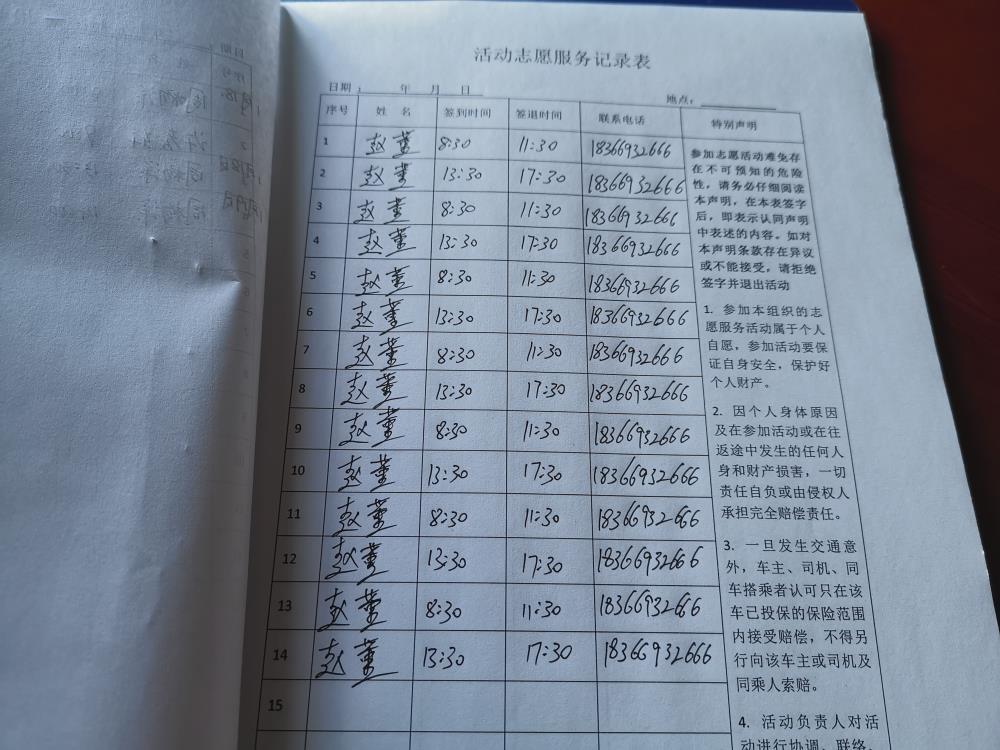 活动志愿服务记录表
日期： 年 月 日 地点：
序号 姓 名 签到时间 签退时间 联系电话 特别声明
1 赵董 8:30 11:30 18366932666
2 赵董 13:30 17:30 18366932666
3 赵董 8:30 11:30 18366932666
4 赵董 13:30 17:30 18366932666
5 赵董 8:30 11:30 18366932666
6 赵董 13:30 17:30 18366932666
7 赵董 8:30 11:30 18366932666
8 赵董 13:30 17:30 18366932666
9 赵董 8:30 11:30 18366932666
10 赵董 13:30 17:30 18366932666
11 赵董 8:30 11:30 18366932666
12 赵董 13:30 17:30 18366932666
13 赵董 8:30 11:30 18366932666
14 赵董 13:30 17:30 18366932666
15
参加志愿活动难免存
在不可预知的危险
性，请务必仔细阅读
本声明，在本表签字
后，即表示认同声明
中表述的内容。如对
本声明条款存在异议
或不能接受，请拒绝
签字并退出活动
1. 参加本组织的志
愿服务活动属于个人
自愿，参加活动要保
证自身安全，保护好
个人财产。
2. 因个人身体原因
及在参加活动或在往
返途中发生的任何人
身和财产损害，一切
责任自负或由侵权人
承担完全赔偿责任。
3. 一旦发生交通意
外，车主、司机、同
车搭乘者认可只在该
车已投保的保险范围
内接受赔偿，不得另
行向该车主或司机及
同乘人索赔。
4. 活动负责人对活
动进行协调、联络、